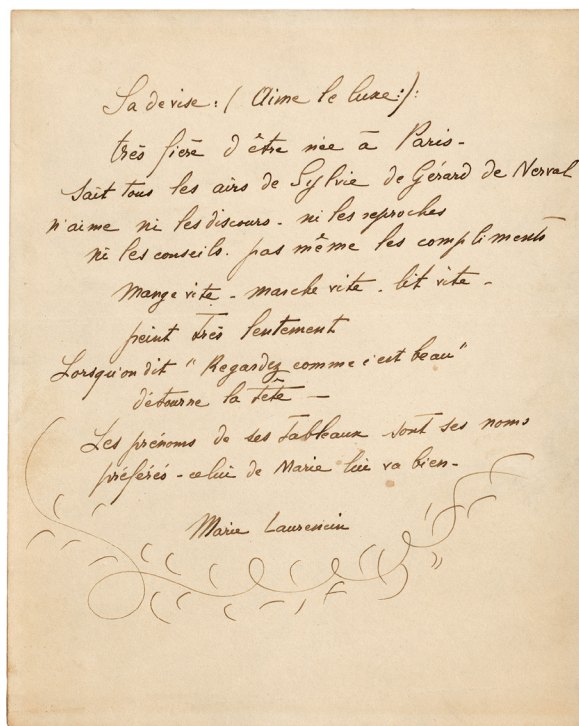 Sa devise : ( Aime le luxe :) :
très fière d'être née à Paris -
Sait tous les airs de Sylvie de Gérard de Nerval
n'aime ni les discours - ni les reproches
ni les conseils. pas même les compliments
mange vite - marche vite - lit vite -
peint très lentement
Lorsqu'on dit " Regardez comme c'est beau "
détourne la tête -
Les prénoms de ses tableaux sont ses noms
préférés - celui de Marie lui va bien -
Marie Laurencin